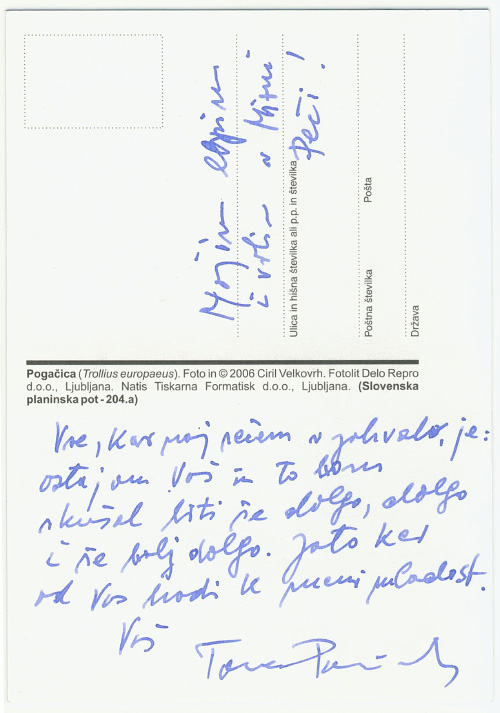 Pogačica (Trollius europaeus). Foto in © 2006 Ciril Velkovrh. Fotolit Delo Repro
d.o.o., Ljubljana. Natis Tiskarna Formatisk d.o.o., Ljubljana. (Slovenska
planinska pot - 204.a)
Vse, kar naj rečem v zahvalo, je:
ostajam Vaš in to bom
skušal biti še dolgo, dolgo
i še bolj dolgo. Zato ker
od Vas hodi k meni mladost.
Vaš
Tone
Mojim
v
Peči!
Ulica in hišna številka ali p.p. in številka
Poštna številka Pošta
Država